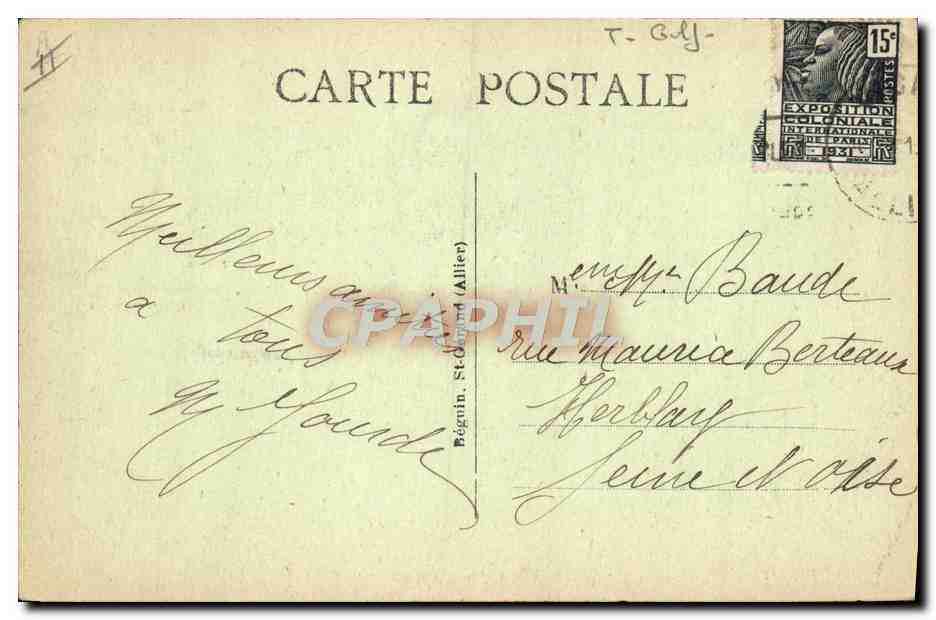 11
T- Golf-
CARTE POSTALE
15c
POSTES
EXPOSITION
COLONIALE
INTERNATIONALE
DE PARIS
1931
Meilleurs amitiés
a tous
M Jourde
Béguin, St-Gérand (Allier)
CPAPHIL
M
et Mr Baude
rue Maurice Berteaux
Herblay
Seine et Oise